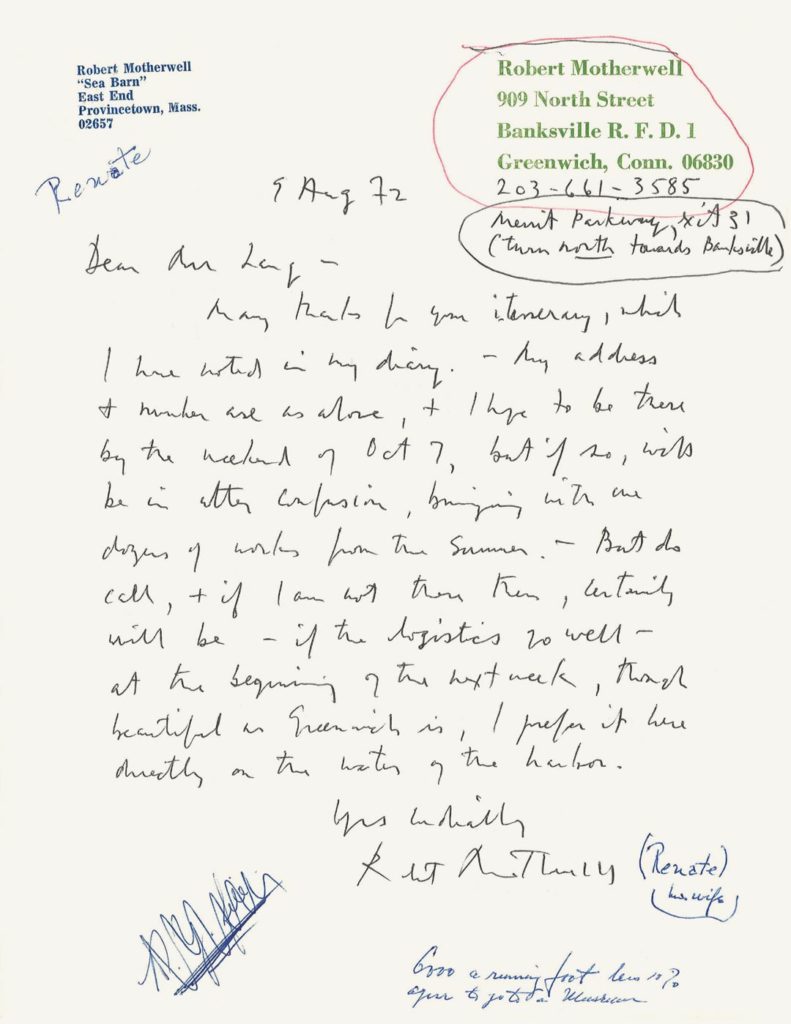 Robert Motherwell
"Sea Barn"
East End
Provincetown, Mass.
02657
Robert Motherwell
909 North Street
Banksville R. F. D. 1
Greenwich, Conn. 06830
203-661-3585
Merrit Parkway, xit 31
(turn north towards Banksville)
Renate
9 Aug 72
Dear Mr Lang —
Many thanks for your itinerary, which
I have noted in my diary. — My address
+ number are as above, + I hope to be there
by the weekend of Oct 7, but if so, will
be in utter confusion, bringing with me
dozens of works from the Summer. — But do
call, + if I am not there then, certainly
will be — if the logistics go well —
at the beginning of the next week, though
beautiful as Greenwich is, I prefer it here
directly on the water of the harbor.
Yrs cordially
Robert Motherwell
(Renate)
his wife
6000 a running foot less 10%
to a Museum